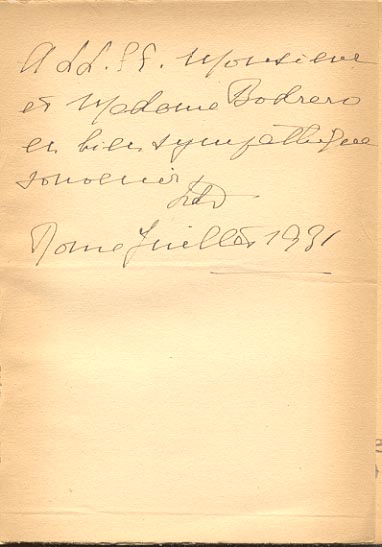 A LL. EE. Monsieur
et Madame Bodrero
en bien sympathique
souvenir
Rome Juillet 1931